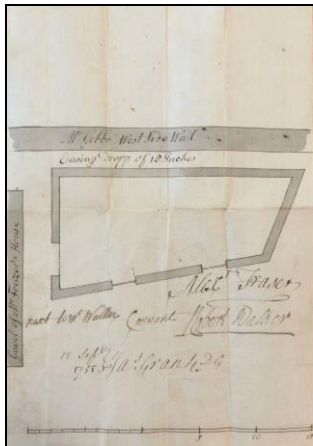 Mr. Gibbs West Side Wall
Easing dropp of 18 Inches
Gavel of Mr Frazer's House
Alexr Fraser
Walker Consents Robert Walker
12 Septr
1753 Jas Grant DG
5 10 15